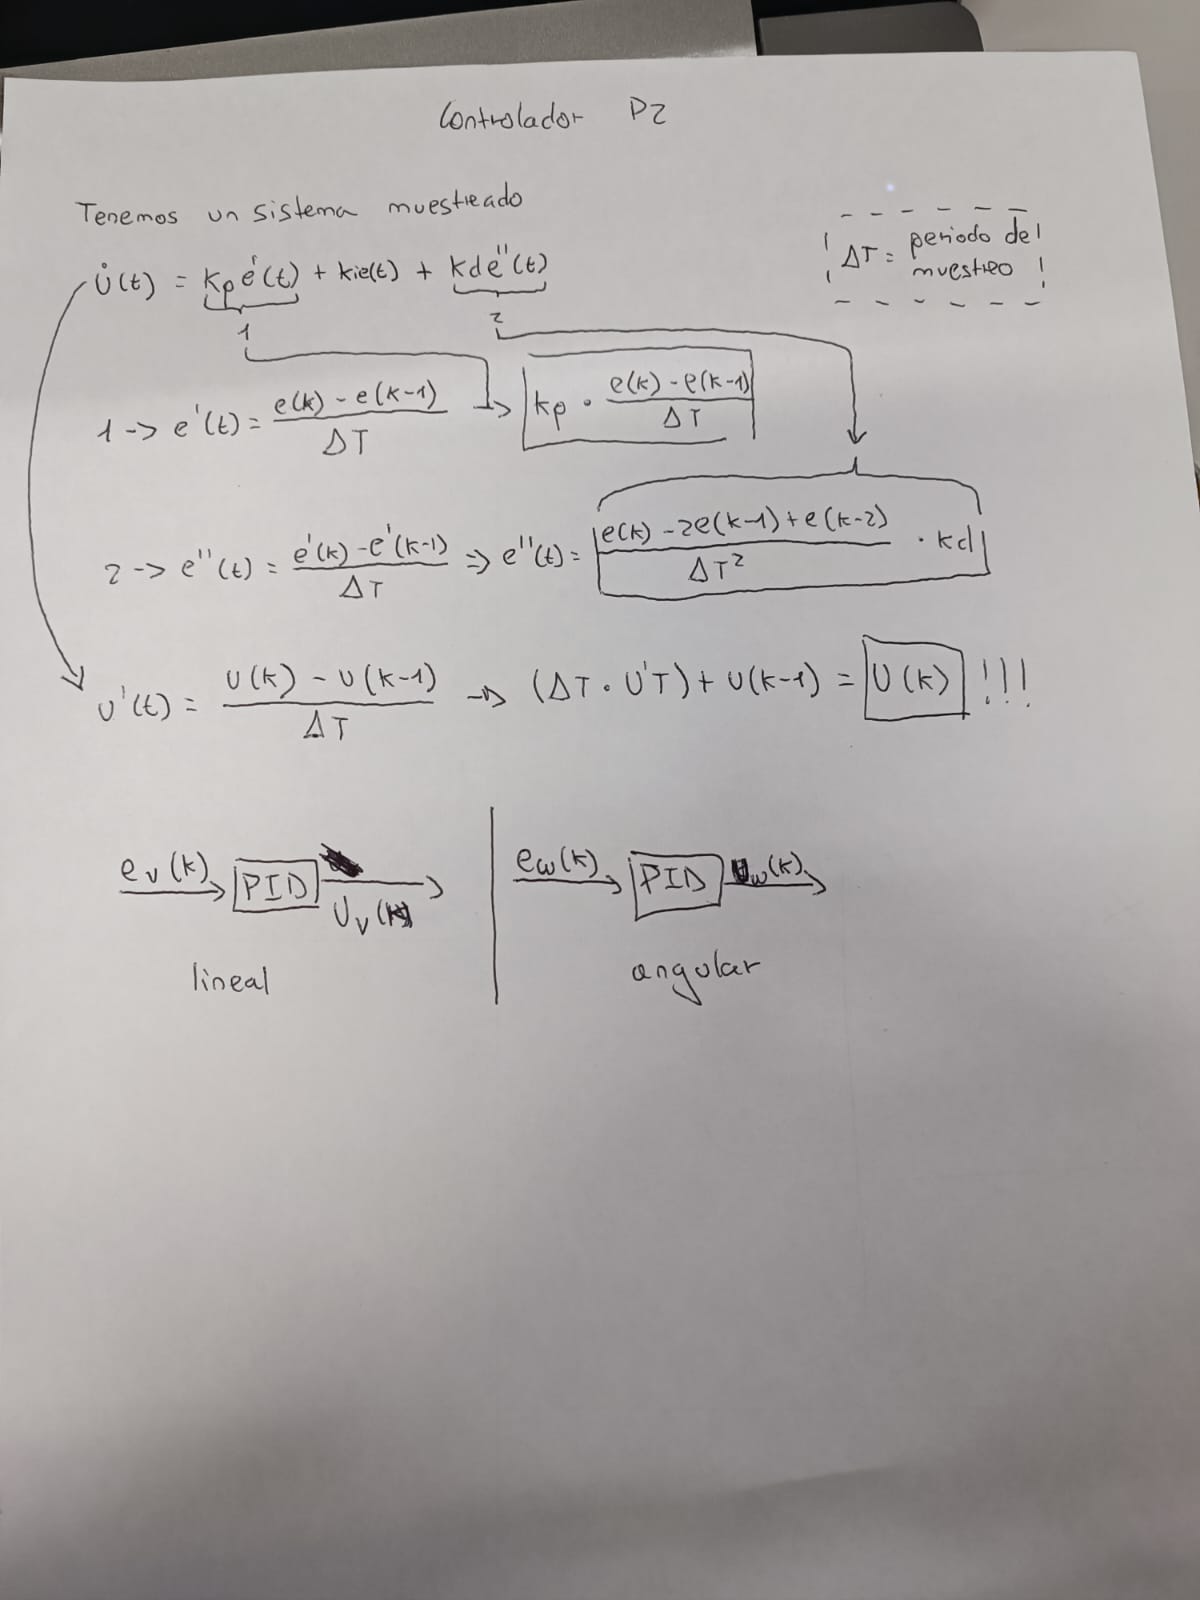 Controlador P2
Tenemos un sistema muestreado
ΔT = periodo del
muestreo
u̇(t) = kp e'(t) + kie(t) + kd e''(t)
1
2
1 -> e'(t) = (e(k) - e(k-1)) / ΔT -> kp · (e(k) - e(k-1)) / ΔT
2 -> e''(t) = (e'(k) - e'(k-1)) / ΔT => e''(t) = (e(k) - 2e(k-1) + e(k-2)) / ΔT² · kd
U'(t) = (U(k) - U(k-1)) / ΔT -> (ΔT · U'T) + U(k-1) = U(k) !!!
ev(k) PID Uv(k)
lineal
ew(k) PID Uw(k)
angular